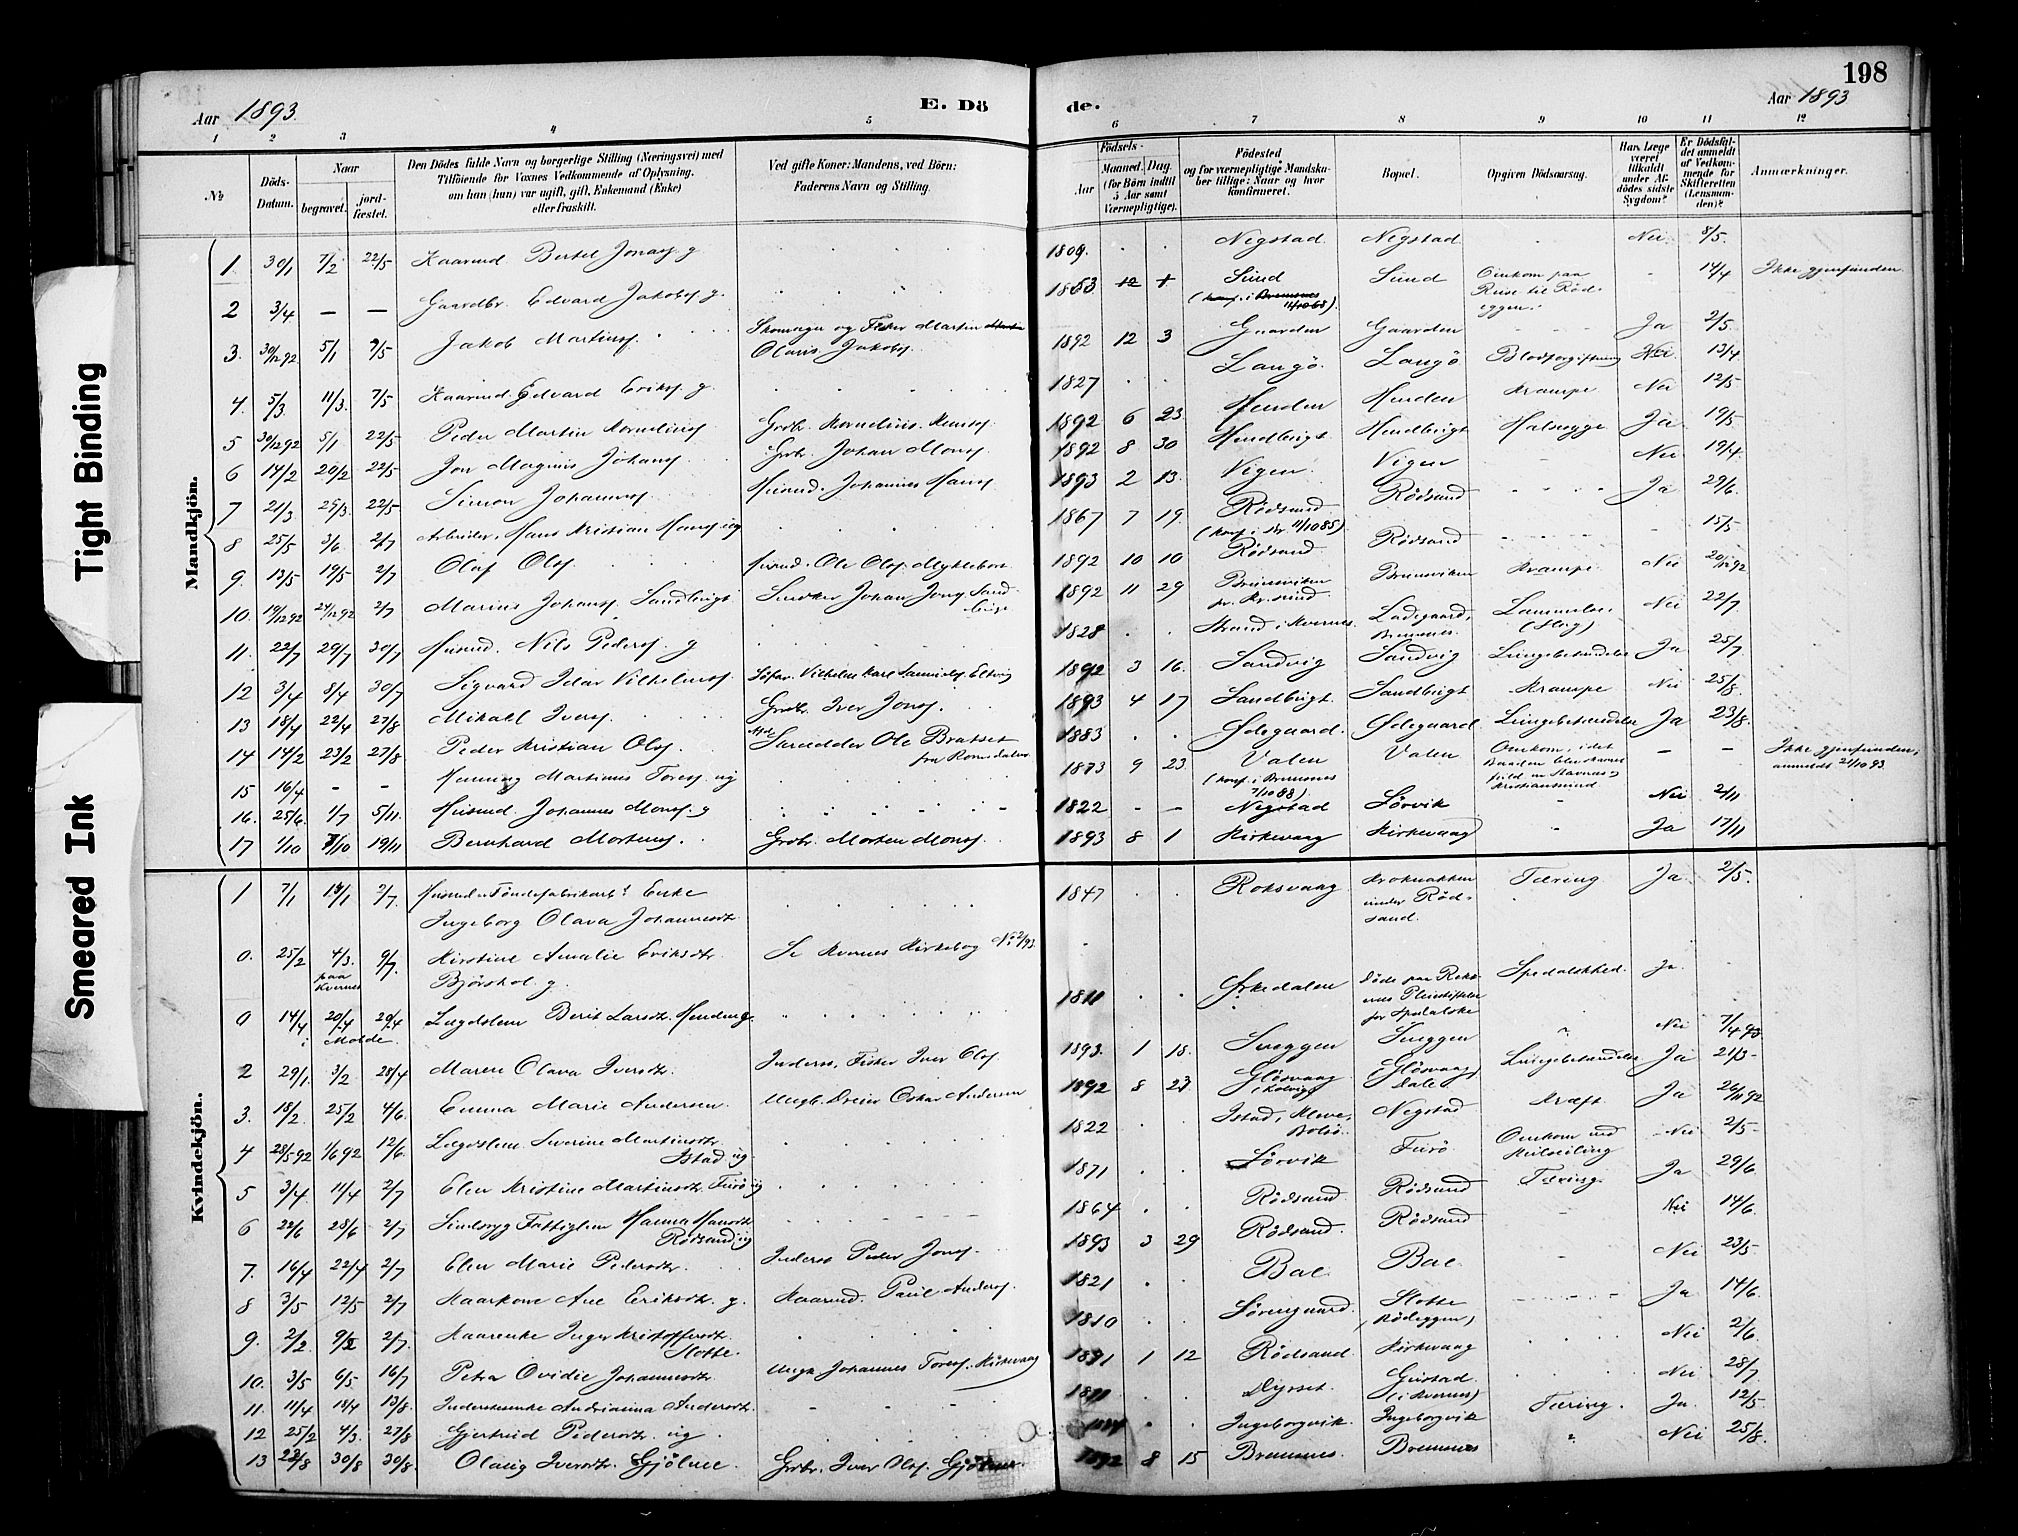 198
Aar 1893.
E. Dö
de.
Aar 1893
1 2 3 4 5 6 7 8 9 10 11 12
№
Döds-Datum.
Naar
begravet.
jord-fæstet.
Den Dödes fulde Navn og borgerlige Stilling (Næringsvei) med
Tilföiende for Voxnes Vedkommende af Oplysning,
om han (hun) var ugift, gift, Enkemand (Enke)
eller fraskilt.
Ved gifte Koner: Mandens, ved Börn:
Faderens Navn og Stilling.
Födsels-
Aar
Maaned. Dag.
(for Börn indtil
5 Aar samt
Værnepligtige).
Födested
og for værnepligtige Mandska-
ber tillige: Naar og hvor
konfirmeret.
Bopæl.
Opgiven Dödsaarsag.
Har Læge
været
tilkaldt
under Af-
dödes sidste
Sygdom?
Er Dödsfal-
det anmeldt
af Vedkom-
mende for
Skifteretten
(Lensman-
den)?
Anmærkninger.
Tight Binding
Smeared Ink
Mandkjön.
1. 30/1 7/2 22/5 Kaarmd. Bertel Jonass. g. 1809. Negstad. Negstad. Nei. 8/5.
2 3/4 — — Gaardbr. Edvard Jakobs. g. 1853 12 + Sund (konf. i Bremsnes 11/10 68). Sund Omkom paa Reise til Röd-eggen. 14/4 Ikke gjenfunden.
3. 30/12 92 5/1 7/5 Jakob Martins. Skomager og Fisker Martin Olaris Jakobs. 1892 12 3 Gaarden Gaarden Ja 2/5.
4. 5/3. 11/3. 7/5 Kaarmd Edvard Eriks. g. 1827 Langö. Langö Blodforgiftning Nei. 13/4
5 30/12 92 5/1 22/5 Peder Martin Kornelius. Grbr. Kornelius. Hanss. 1892 6 23. Henden Henden Krampe Nei 12/5
6 14/2 20/2 22/5 Jon Magnus Johans. Grbr. Johan Mons. 1892 8 30 Hendbugt. Hendbugt Halssyge Ja. 19/5
7 21/3 29/3. 22/5 Simon Johanness. Husmd. Johannes Hans. 1893 2 13. Vigen. Vigen Nei 19/4.
8 25/5 3/6 2/7 Arbeider, Hans Kristian Hans. ug 1867 7 19. Rödsand (konf. i Br. 11/10 85). Rödsand Ja 29/6.
9. 13/5 19/5 2/7 Olaf Ols. Husmd. Ole Ols. Myklebost 1892 10 10 Rödsand. Rödsand 15/5
10. 19/12 92 24/12 92 2/7 Marius Johans. Sandbugt Snedker Johan Jons. Sandbugt 1892 11 29 Brunsviken pr. Kr.sund. Brunsviken Krampe Nei 20/12 92
11. 22/7 29/7 30/7 Husmd. Nils Peders. g 1828 Strand i Kvernes. Ladegaard, Bremsnes. Nei 22/7.
12 3/4 8/4 30/7 Sigvard Idar Vilhelms. Vilhelm Karl Samuels. 1892 3 16. Sandvig Sandvig Lungebetændelse Ja 25/7.
13 18/4 22/4 27/8 Mikael Ivers. Grbr. Iver Jons. 1893 4 17 Sandbugt. Sandbugt Krampe Nei 25/8.
14 14/2 23/2 27/8 Peder Kristian Ols. Ole Bratset fra Romsdalen 1883 Ødegaard. Ødegaard. Lungebetændelse Ja 23/8.
15 16/4 - - Henning Martinus Tores. ug 1873 9 23. Valen (konf. i Bremsnes 7/10 88). Valen Omkom, i det Baaden blev Kristianssund — — Ikke gjenfunden, anmeldt 21/10 93.
16. 25/6. 1/7 5/11. Husmd. Johannes Mons. g 1822 — — Negstad Sörvik Nei 2/11
17 1/10 7/10 19/11 Bernhard Mortens. Grdbr. Morten Mons. 1893 8 1 Kirkevaag Kirkevaag Ja 17/11
Kvindekjön.
1 7/1 14/1 2/7. Enke Ingeborg Olava Johannesdtr. 1847 Roksvaag Kroknakken under Röd-sand. Tæring Ja. 2/5.
0. 25/2 4/3. paa Kvernes 9/7. Kirstine Amalie Eriksdtr. Björshol. g. Se Kvernes Kirkebog No 2/93.
0 14/4 i 20/4 Molde. 20/4 Lægdslem Berit Larsdtr. Henden g. 1811 Ørkedalen Döde paa Rekenes Pleiestiftelse for Spedalske Spedalskhed. Ja.
2 29/1. 3/2 28/4 Maren Olava Iversdtr. Inderst, Fisker Iver Ols. 1893. 1 18. Sveggen Sveggen Nei 7/4 93
3. 18/2 25/2 4/6. Emma Marie Andersen. Ungk. Dreier Oskar Andersen 1892 8 23 Glösvaag Glösvaag, Dale Lungebetændelse Ja 21/3
4 28/5 92 1/6 92 12/6. Lægdslem. Severine Martinsdtr. Istad ug. 1822 Istad, Kleve, Bolsö. Negstad Kræft. Ja 26/11 92
5 3/4. 11/4 2/7 Elen Kristine Martinsdtr. Furö ug 1871 Sörvik Furö Omkom ved Kulseiling Nei 2/5
6 22/6 28/6 2/7 Sindssyg Fattiglem Hanna Hansdtr. Rödsand ug 1864 Rödsand. Rödsund Tæring. Ja 29/6
7. 16/4 22/4 2/7 Elen Marie Pedersdtr. Inderst Peder Jons. 1893 3 29 Rödsand. Rödsand Nei 14/6.
8 3/5 12/5 2/7 Kaarkone Ane Eriksdtr. g. Kaarmd. Paul Anders. 1821 Bae. Bae. Nei 23/5
9. 2/2. 9/2 2/7. Kaarenke Inger Kristoffersdtr. Slotte. 1810 Sörengaard. Slotte (Rödeggen) Ja 14/6.
10. 3/5 6/5. 16/7 Petra Ovidie Johannesdtr. Ungk. Johannes Tores. Kirkevaag 1891 1 12 Rödsand. Kirkevaag Nei 2/6
11. 11/4 18/4 13/8. Andrianna Andersdtr. 1811 Dyrset. Gustad. (i Kvernes) Nei 28/7
12 25/2 4/3. 27/8 Gjertrud Pedersdtr. ug. Ingeborgvik. Ingeborgvik Tæring. Ja. 12/5
13 23/8 30/8 30/8. Olaug Iversdtr. Gjölme. Grbr. Iver Ols. Gjölme. 1892 8 15 Bremsnes. Bremsnes Nei 25/8.